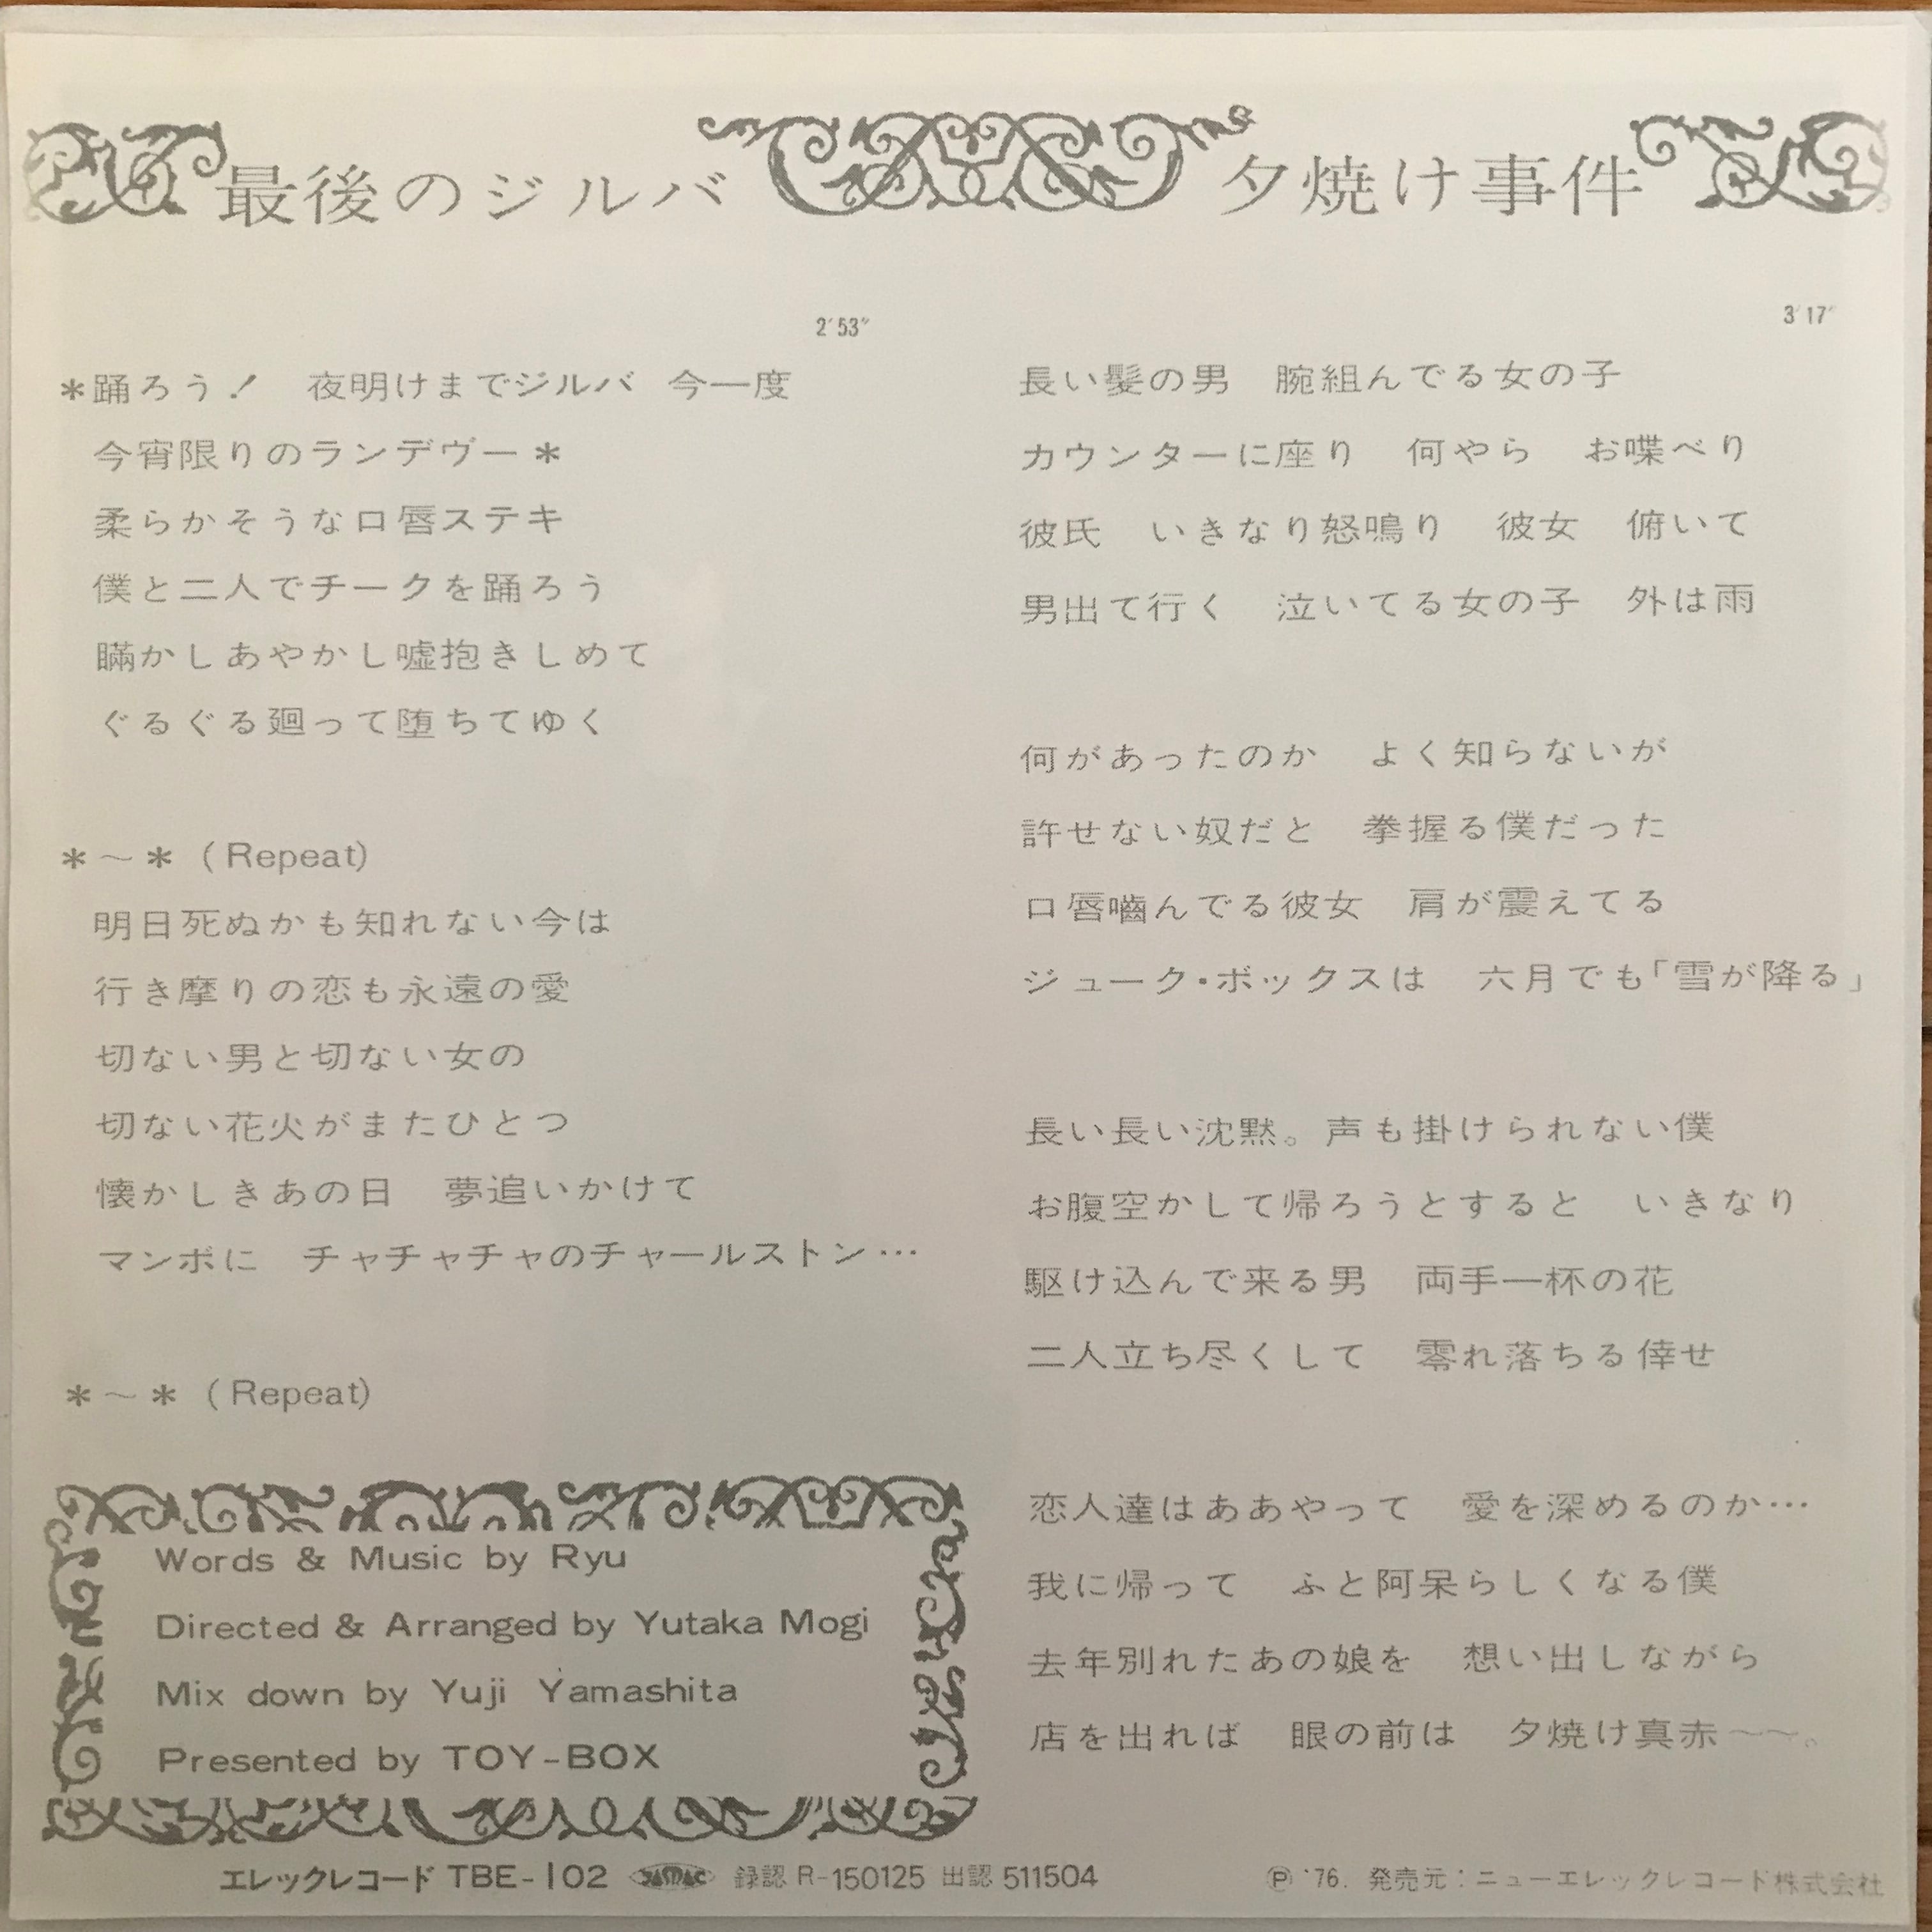 最後のジルバ
2′53″
＊踊ろう！　夜明けまでジルバ　今一度
今宵限りのランデヴー＊
柔らかそうな口唇ステキ
僕と二人でチークを踊ろう
瞞かしあやかし嘘抱きしめて
ぐるぐる廻って堕ちてゆく
＊～＊（Repeat）
明日死ぬかも知れない今は
行き摩りの恋も永遠の愛
切ない男と切ない女の
切ない花火がまたひとつ
懐かしきあの日　夢追いかけて
マンボに　チャチャチャのチャールストン…
＊～＊（Repeat）
Words & Music by Ryu
Directed & Arranged by Yutaka Mogi
Mix down by Yuji Yamashita
Presented by TOY-BOX
夕焼け事件
3′17″
長い髪の男　腕組んでる女の子
カウンターに座り　何やら　お喋べり
彼氏　いきなり怒鳴り　彼女　俯いて
男出て行く　泣いてる女の子　外は雨
何があったのか　よく知らないが
許せない奴だと　拳握る僕だった
口唇嚙んでる彼女　肩が震えてる
ジューク・ボックスは　六月でも「雪が降る」
長い長い沈黙。声も掛けられない僕
お腹空かして帰ろうとすると　いきなり
駆け込んで来る男　両手一杯の花
二人立ち尽くして　零れ落ちる倖せ
恋人達はああやって　愛を深めるのか…
我に帰って　ふと阿呆らしくなる僕
去年別れたあの娘を　想い出しながら
店を出れば　眼の前は　夕焼け真赤～～。
エレックレコード TBE-102 JASRAC 録認 R-150125 出認 511504
Ⓟ '76. 発売元：ニューエレックレコード株式会社